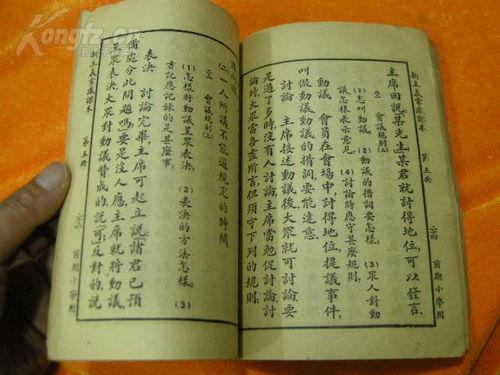 Kongfz.cn
新主義常識課本 第五冊 前期小學用
主席回說「某先生」某君就討得地位，可以發言。
會議規則(二)
(1)怎叫動議？ (2)動議的措詞要怎樣？ (3)眾人對動
議怎樣表示意見？ (4)討論時應守甚麼規則？
動議 會員在會場中，討得地位，提議事件，
叫做動議。動議的措詞，要能達意。
討論 主席接述動議後，大眾就可討論。要
是過了多時，沒有人討論，主席當勉促討論。討
論時，大眾當各盡所言，但須守下列的規則：
(二)一人所議，不能過規定的時間。
會議規則(三)
(1)怎樣將動議呈眾表決？ (2)表決的方法怎樣？ (3)
書記應記錄的是甚麼事？
表決 討論完畢，主席可起立說：「諸君已預
備處分此問題嗎？」要是沒人應，主席就將動議
呈眾表決。大眾對動議贊成的，說「可」；反對的，說
新主義常識課本 第五冊 前期小學用